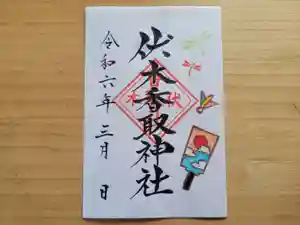 伏木香取神社
令和六年三月 日